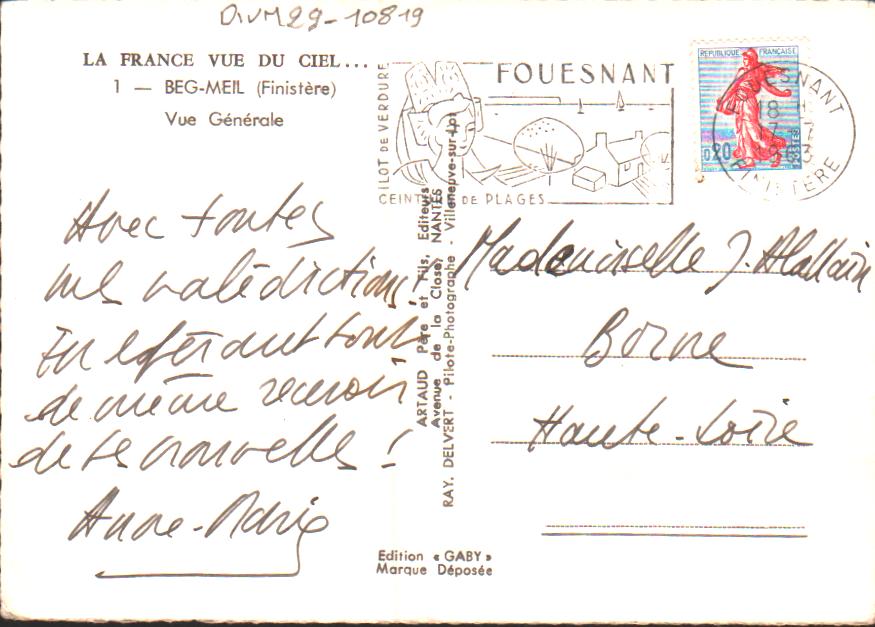 DIVM29-10819
LA FRANCE VUE DU CIEL...
1 — BEG-MEIL (Finistère)
Vue Générale
FOUESNANT
ILOT DE VERDURE
CEINT DE PLAGES
REPUBLIQUE FRANÇAISE
0,20
POSTES
FOUESNANT
18 H
17-7
1963
FINISTERE
Avec toutes
mes malédictions !
En espérant tout
de même recevoir
de tes nouvelles !
Anne-Marie
ARTAUD Père et Fils, Editeurs
Avenue de la Close, NANTES
RAY. DELVERT - Pilote-Photographe - Villeneuve-sur-Lot
Mademoiselle J. Allallain
Borne
Haute-Loire
Edition « GABY »
Marque Déposée